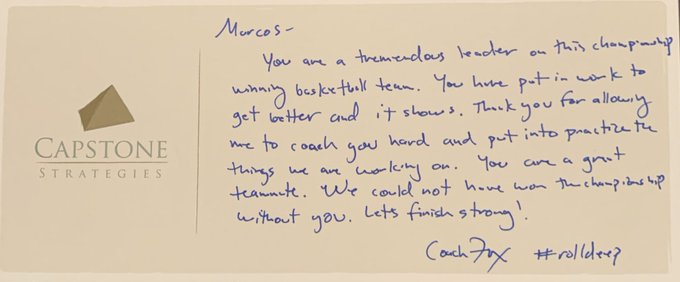 CAPSTONE
STRATEGIES
Marcos-
You are a tremendous leader on this championship
winning basketball team. You have put in work to
get better and it shows. Thank you for allowing
me to coach you hard and put into practice the
things we are working on. You are a great
teammate. We could not have won the championship
without you. Let's finish strong!
Coach Fox #rolldeep